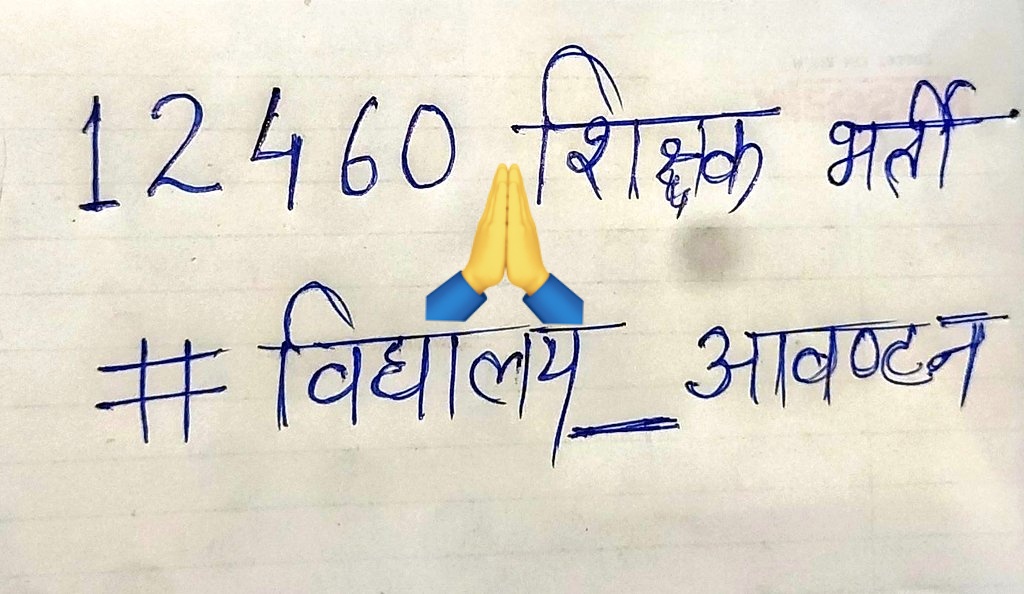 12460 शिक्षक भर्ती
🙏
# विद्यालय_आवण्टन